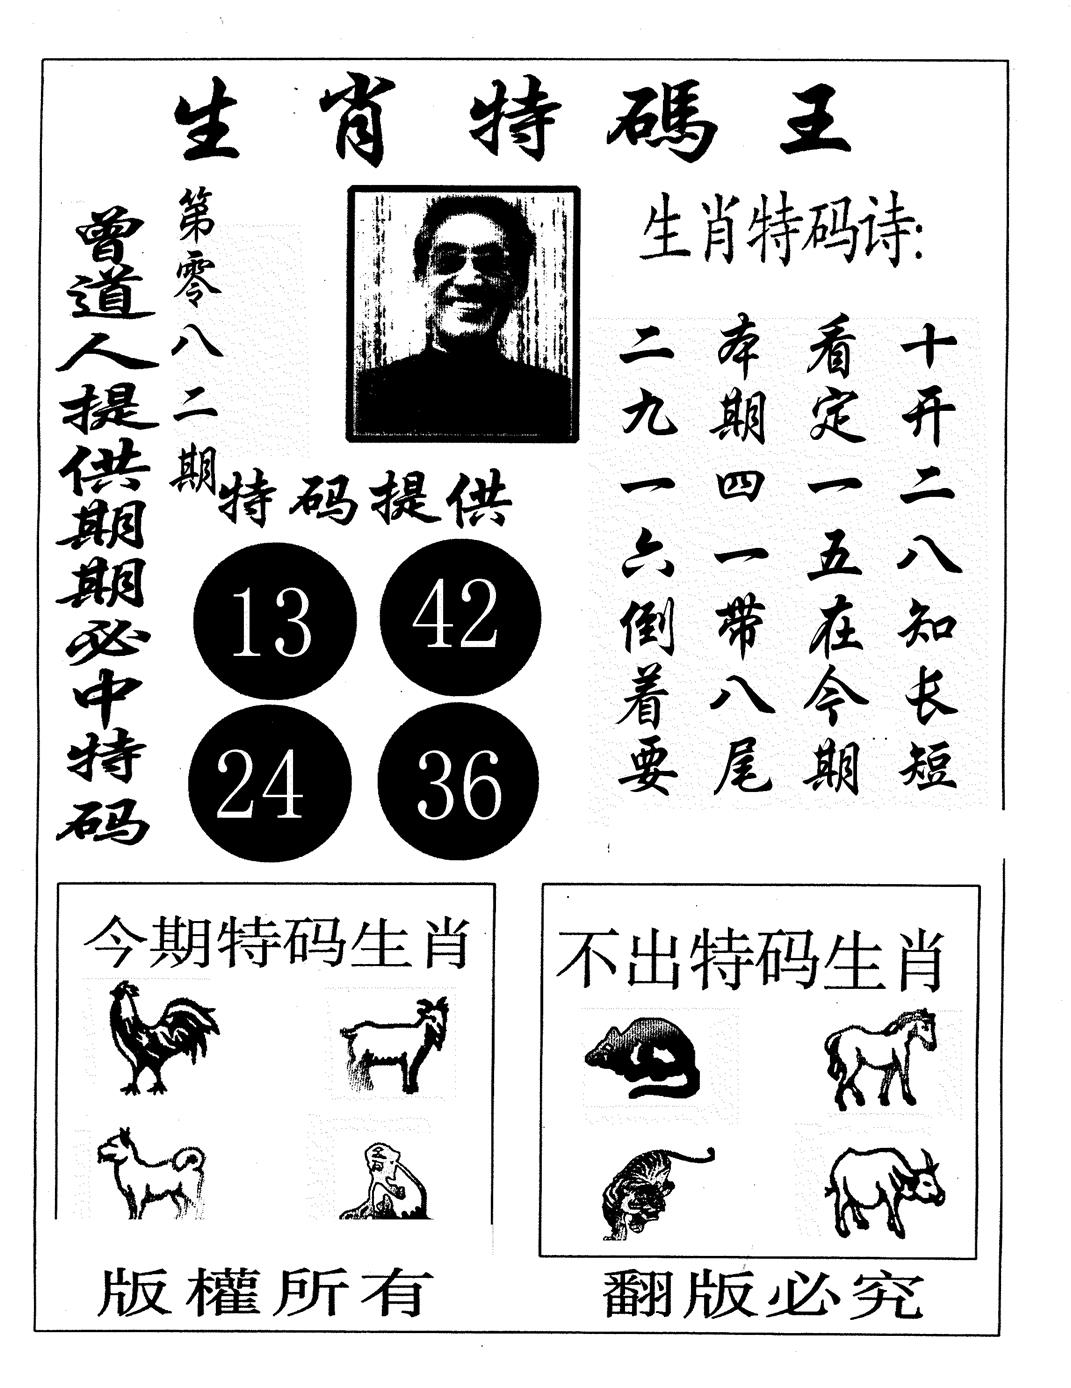 生肖特碼王
曾道人提供期期必中特码
第零八二期
生肖特码诗:
十开二八知长短
看定一五在今期
本期四一带八尾
二九一六倒着要
特码提供
13 42
24 36
今期特码生肖
不出特码生肖
版權所有
翻版必究